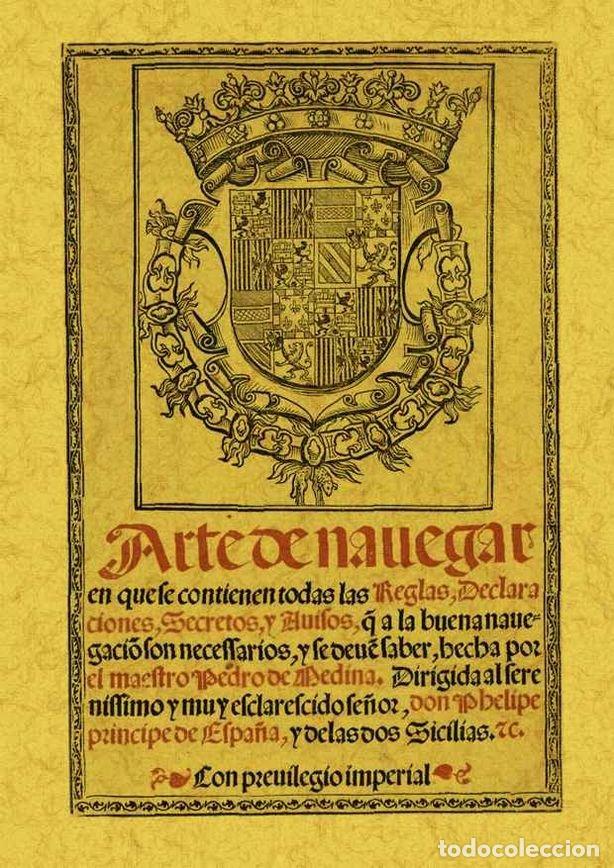 Arte de nauegar
en que se contienen todas las Reglas, Declara
ciones, Secretos, y Auisos, q̃ a la buena naue-
gaciō son necessarios, y se deuē saber, hecha por
el maestro Pedro de Medina. Dirigida al sere
nissimo y muy esclarescido señor, don Phelipe
principe de España, y de las dos Sicilias. ⁊c.
Con preuilegio imperial
todocoleccion